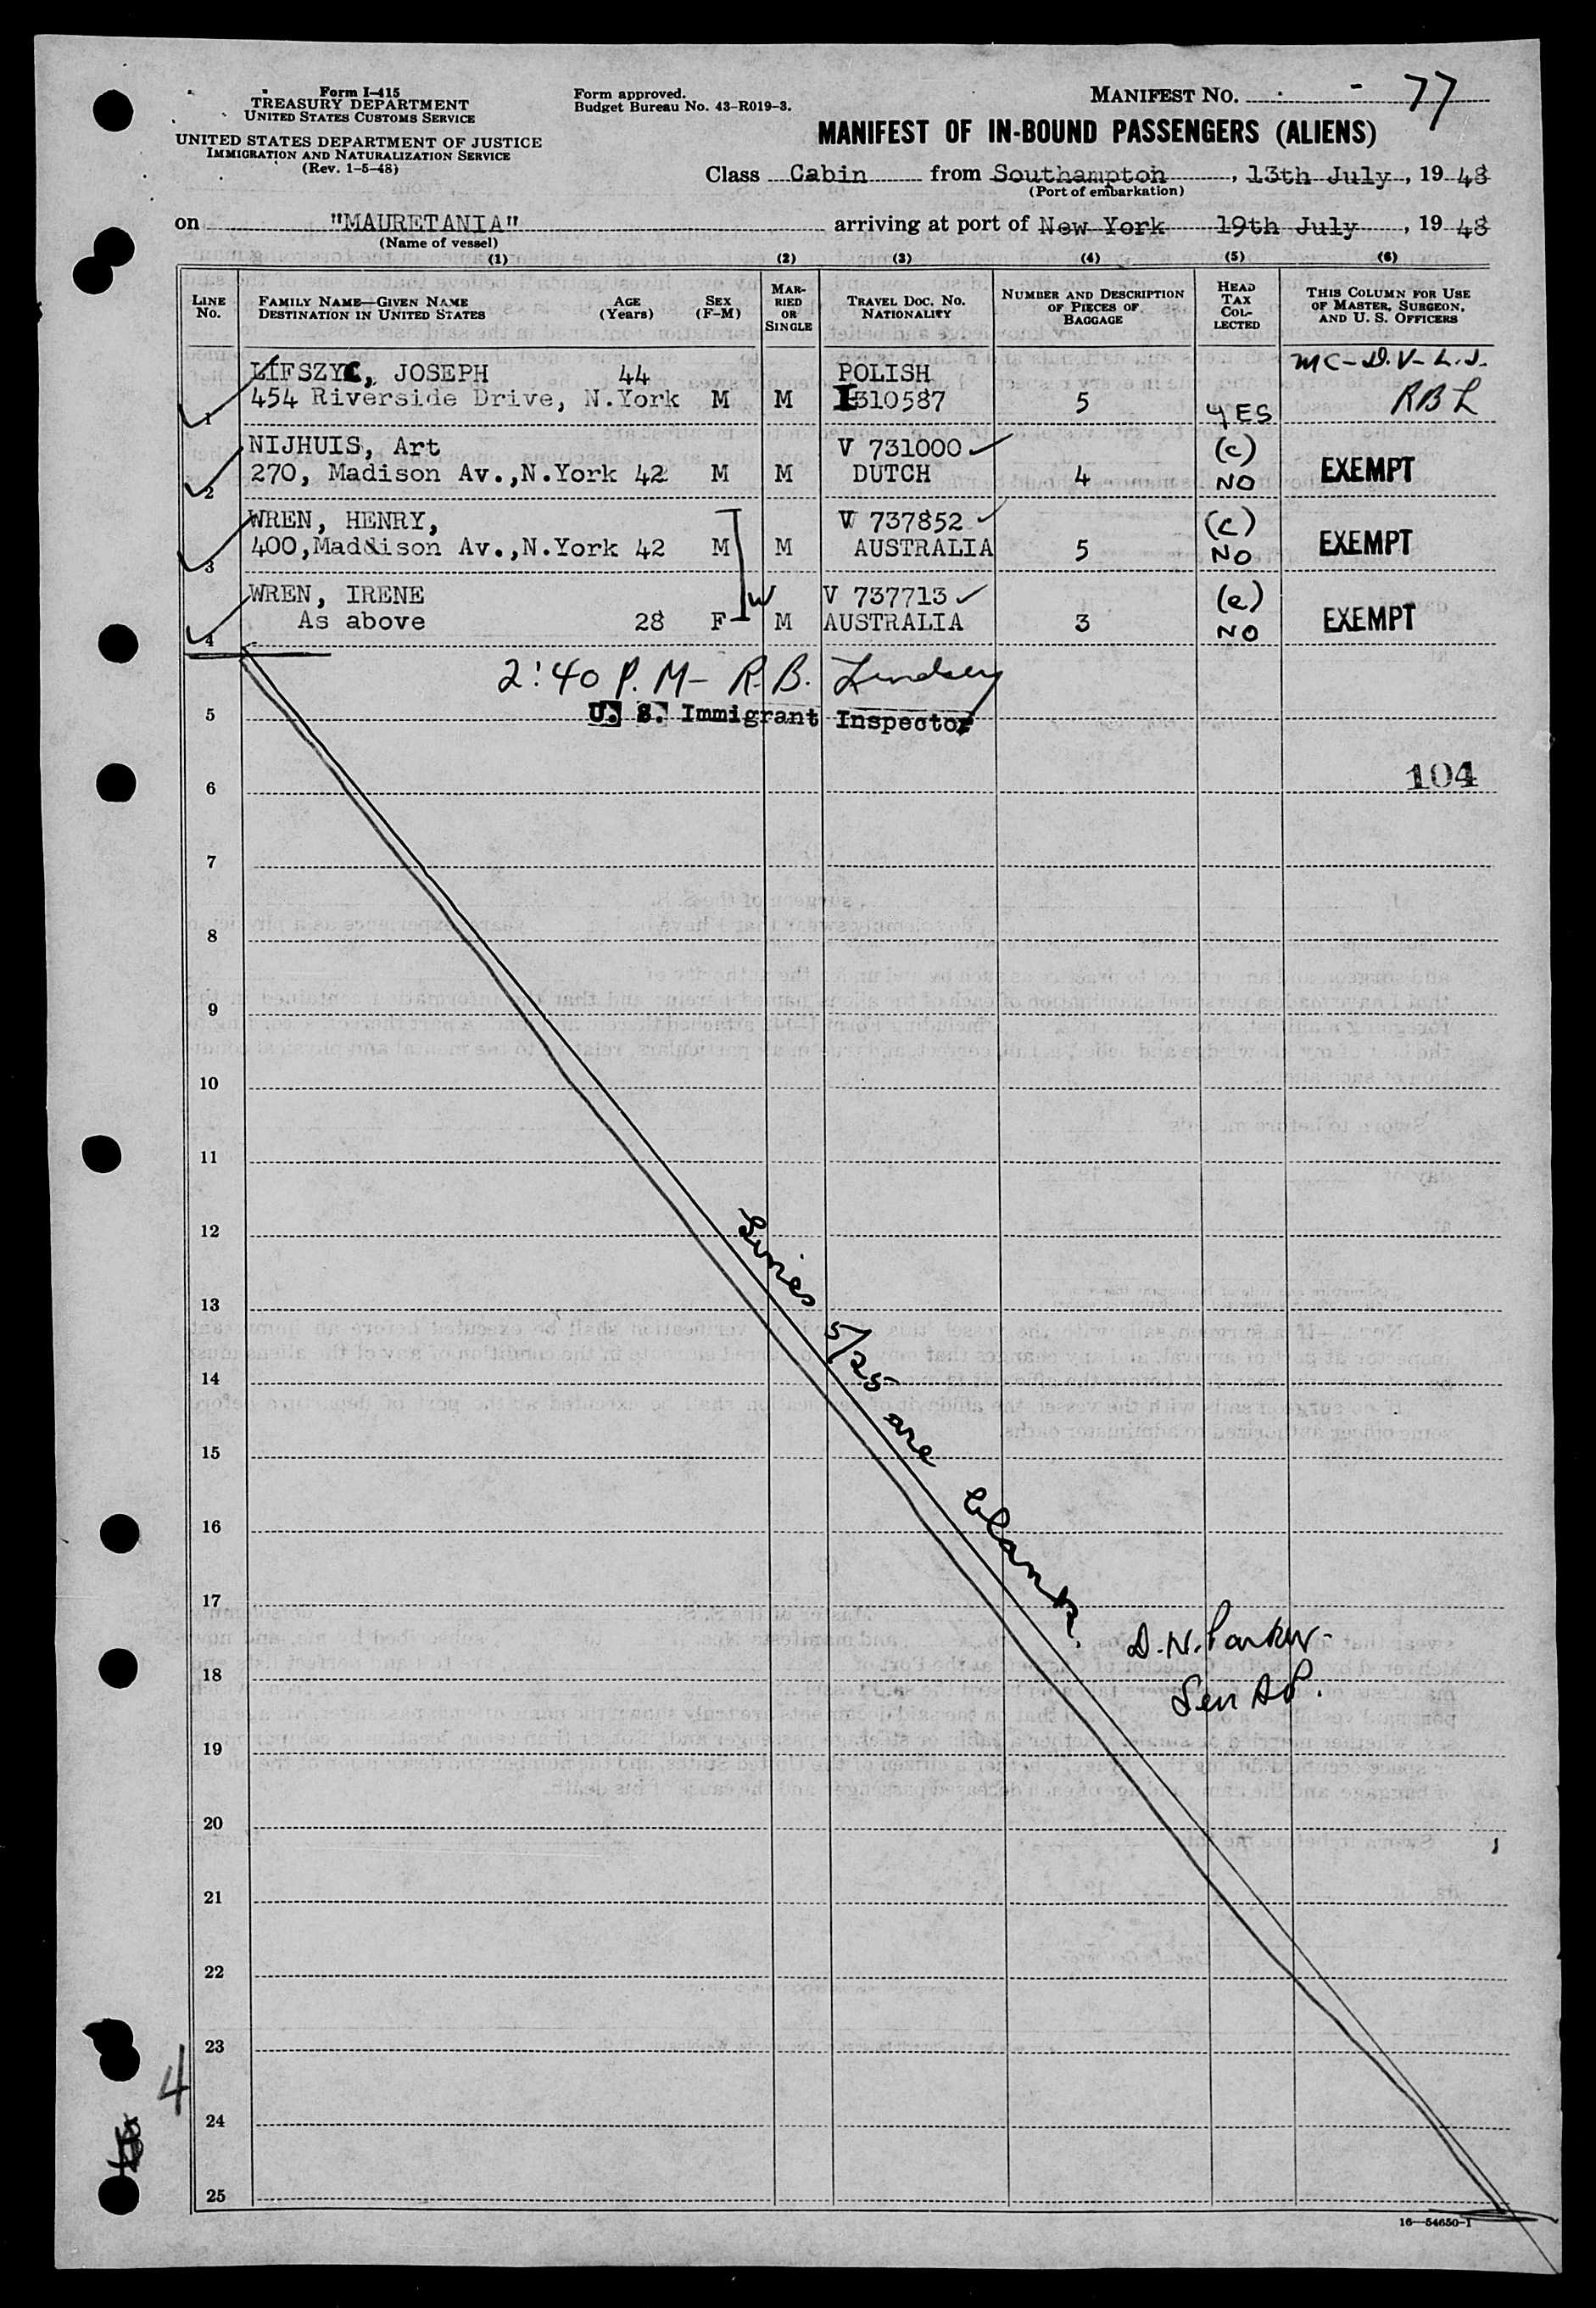 Form I-415
TREASURY DEPARTMENT
UNITED STATES CUSTOMS SERVICE
UNITED STATES DEPARTMENT OF JUSTICE
IMMIGRATION AND NATURALIZATION SERVICE
(Rev. 1-5-48)
Form approved.
Budget Bureau No. 43-R019-3.
MANIFEST NO. 77
MANIFEST OF IN-BOUND PASSENGERS (ALIENS)
Class Cabin from Southampton, 13th July, 19 48
(Port of embarkation)
on "MAURETANIA" arriving at port of New York 19th July, 19 48
(Name of vessel)
(1) (2) (3) (4) (5) (6)
LINE NO.
FAMILY NAME—GIVEN NAME
DESTINATION IN UNITED STATES
AGE (Years)
SEX (F-M)
MARRIED OR SINGLE
TRAVEL DOC. NO.
NATIONALITY
NUMBER AND DESCRIPTION OF PIECES OF BAGGAGE
HEAD TAX COLLECTED
THIS COLUMN FOR USE OF MASTER, SURGEON, AND U. S. OFFICERS
LIFSZYC, JOSEPH 44 POLISH
1 454 Riverside Drive, N.York M M I310587 5 YES RBL
NIJHUIS, Art V 731000 (c)
2 270, Madison Av.,N.York 42 M M DUTCH 4 NO EXEMPT
WREN, HENRY, V 737852 (c)
3 400,Maddison Av.,N.York 42 M M AUSTRALIA 5 NO EXEMPT
WREN, IRENE W V 737713 (e)
4 As above 28 F M AUSTRALIA 3 NO EXEMPT
2:40 P.M- R.B. Lindsey
U. S. Immigrant Inspector
5
104
6
7
8
9
10
11
12
13
14
15
16
17
18
19
20
21
22
23
24
25
Lines 5/25 are blank.
D.N. Parker-
4
16—54650-1